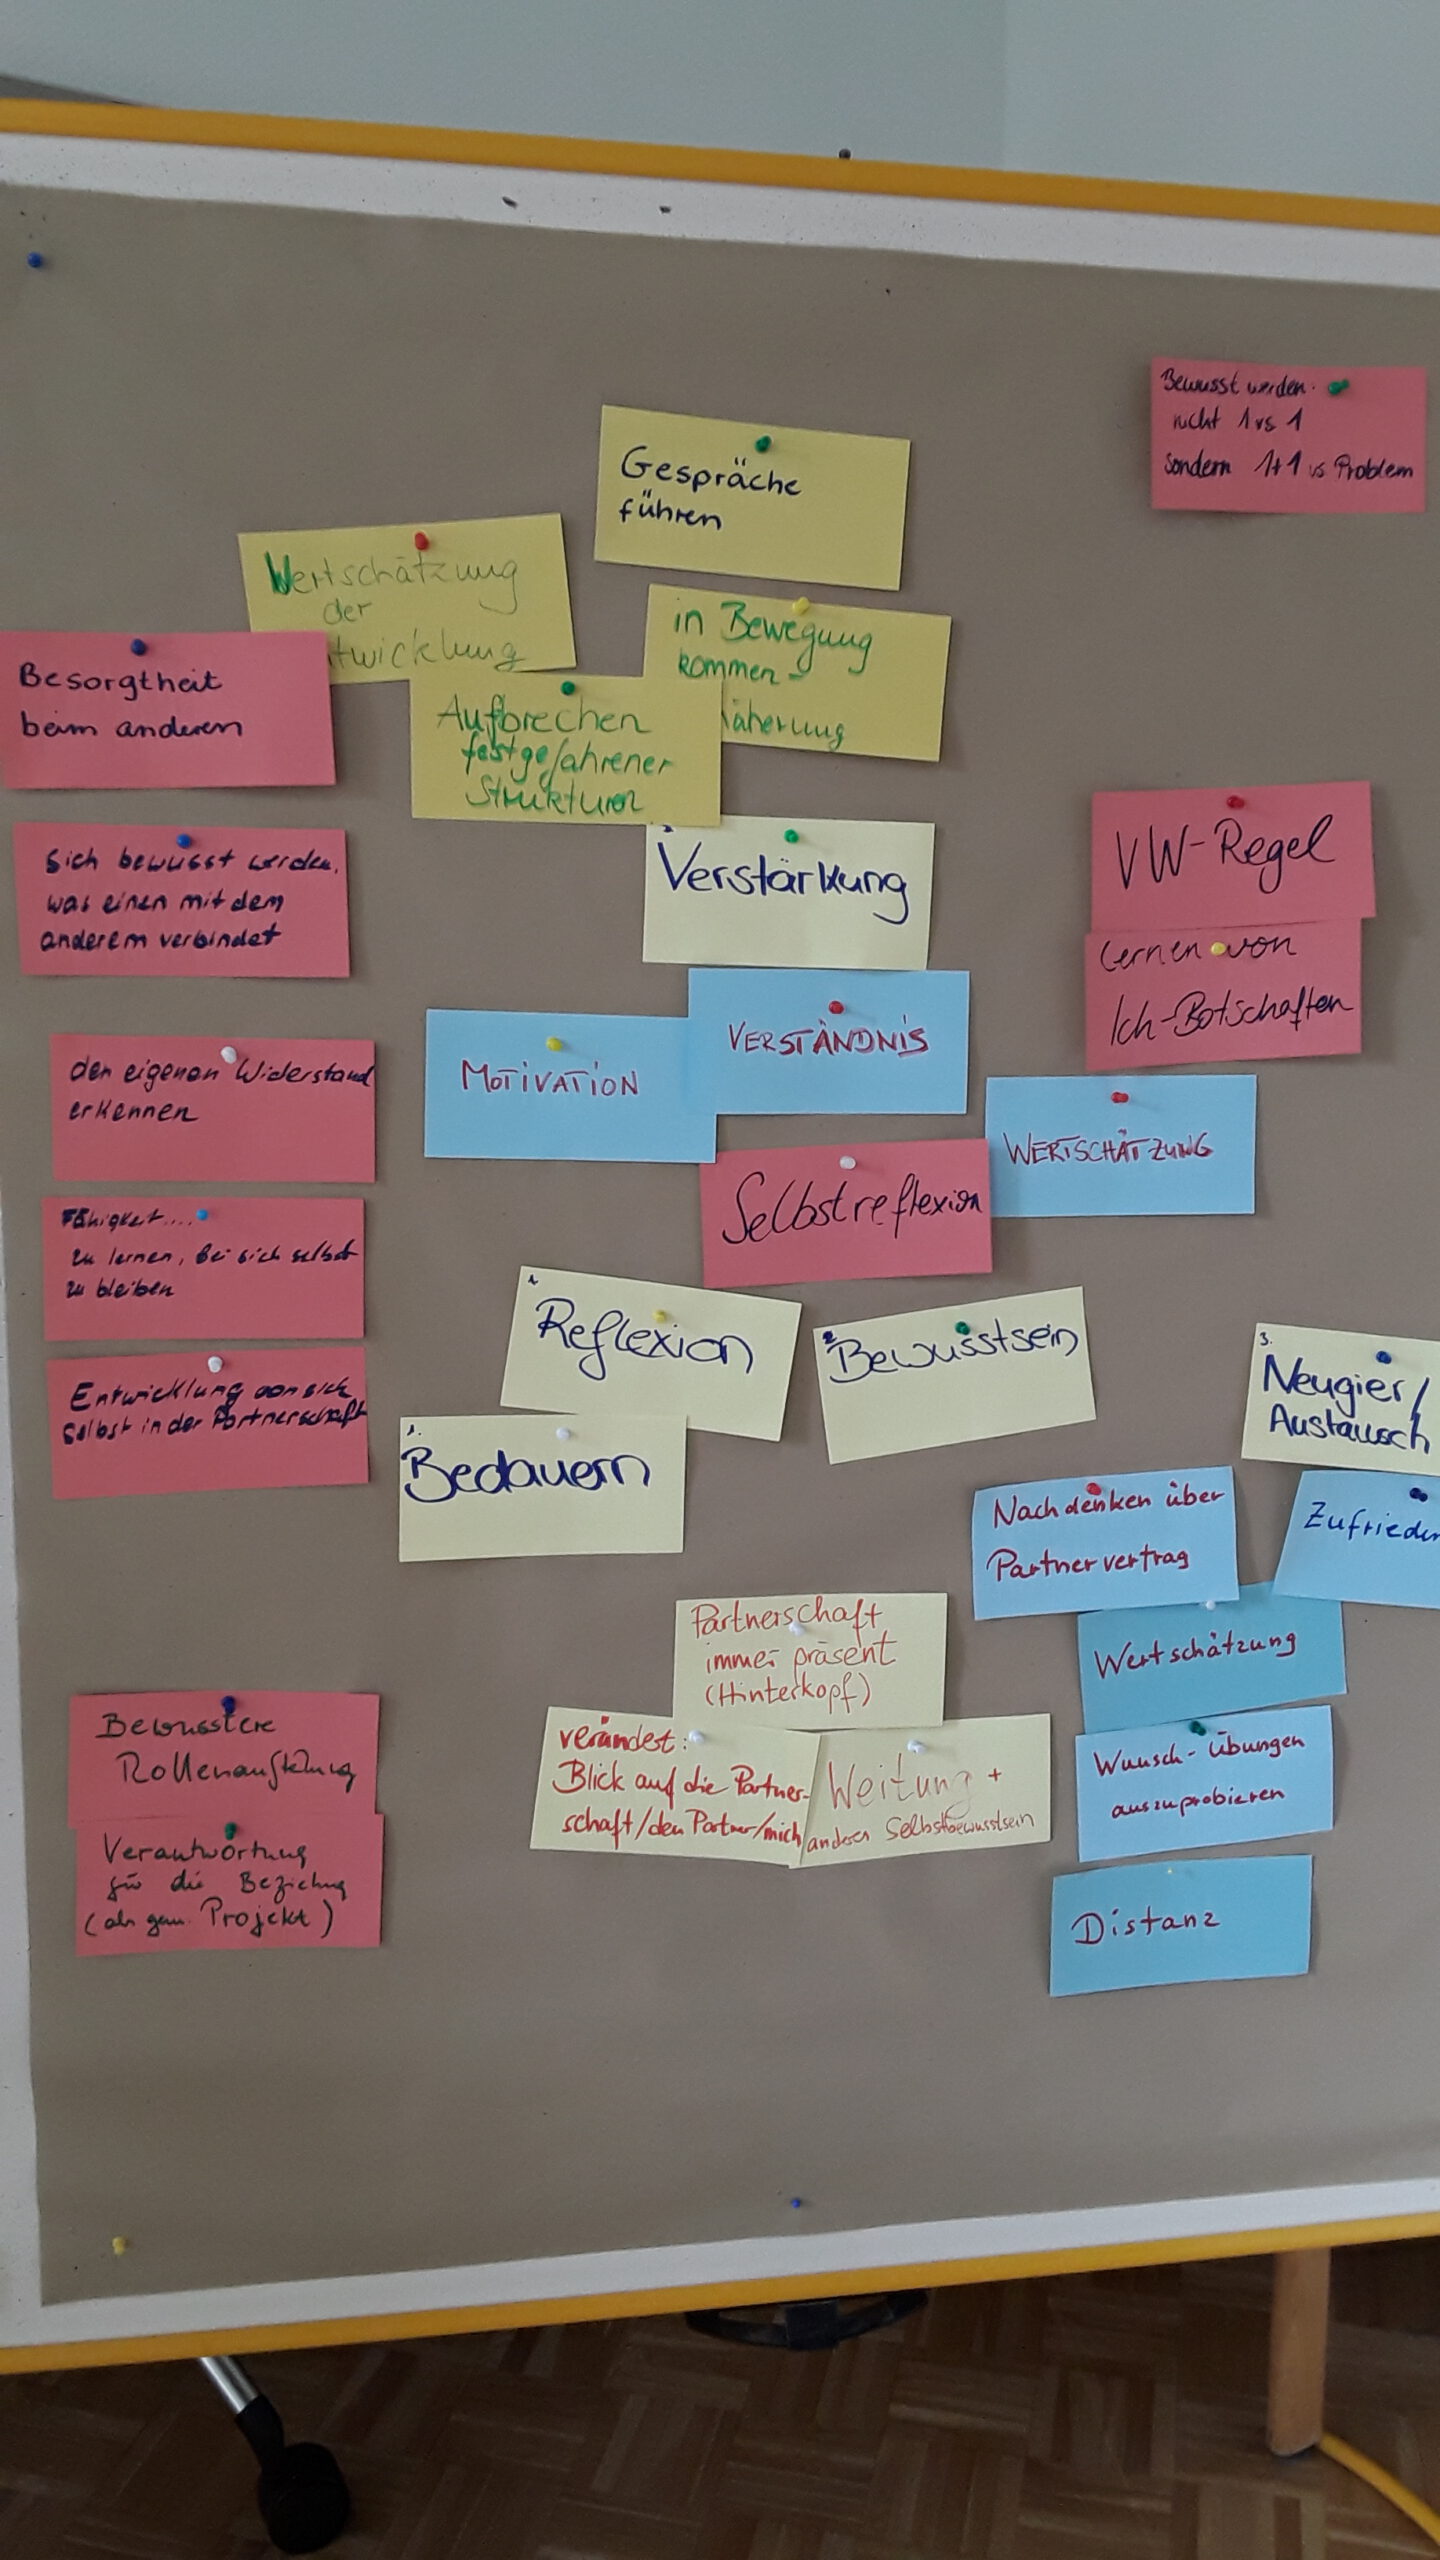 Bewusst werden:
nicht 1 vs 1
sondern 1+1 vs Problem
Gespräche
führen
Wertschätzung
der
twicklung
in Bewegung
kommen -
näherung
Besorgtheit
beim anderen
Aufbrechen
festgefahrener
Strukturen
Verstärkung
VW-Regel
Lernen von
Ich-Botschaften
Sich bewusst werden,
was einen mit dem
anderem verbindet
MOTIVATION
VERSTÄNDNIS
WERTSCHÄTZUNG
den eigenen Widerstand
erkennen
Selbstreflexion
Fähigkeit....
zu lernen, bei sich selbst
zu bleiben
1.
Reflexion
2.
Bewusstsein
3.
Neugier/
Austausch
Entwicklung von sich
selbst in der Partnerschaft
1.
Bedauern
Nachdenken über
Partnervertrag
Zufrieden
Wertschätzung
Partnerschaft
immer präsent
(Hinterkopf)
verändest:
Blick auf die Partner-
schaft/den Partner/mich
Weitung +
anderes Selbstbewusstsein
Wunsch-Übungen
auszuprobieren
Distanz
Bewusstere
Rollenaufteilung
Verantwortung
für die Beziehung
(als gem. Projekt)